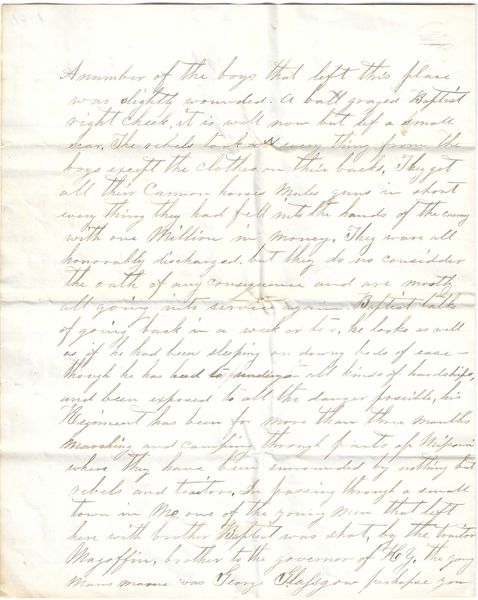 A number of the boys that left this place
was slightly wounded. A ball grazed Baptist
right cheek, it is well now but left a small
scar. The rebels took every thing from the
boys except the clothes on their backs, They got
all their Cannon horses Mules guns in short
every thing they had fell into the hands of the enemy
with one Million in money. They ware all
honorably discharged. but they do no considder
the oath of any consequence and are mostly
all going into service again Baptist talks
of going back in a week or two, he looks as well
as if he had been sleeping on downy beds of ease —
though he has had to undergo all kinds of hardships,
and been exposed to all the danger possible, his
Regiment has been for more than three months
marching and camping through parts of Missouri
where they have been surrounded by nothing but
rebels and traitors. In passing through a small
town in Mo, one of the young men that left
here with brother Baptist was shot, by the traitor
Magoffin, brother to the governor of KY. the young
mans name was George Glassgow perhapse you